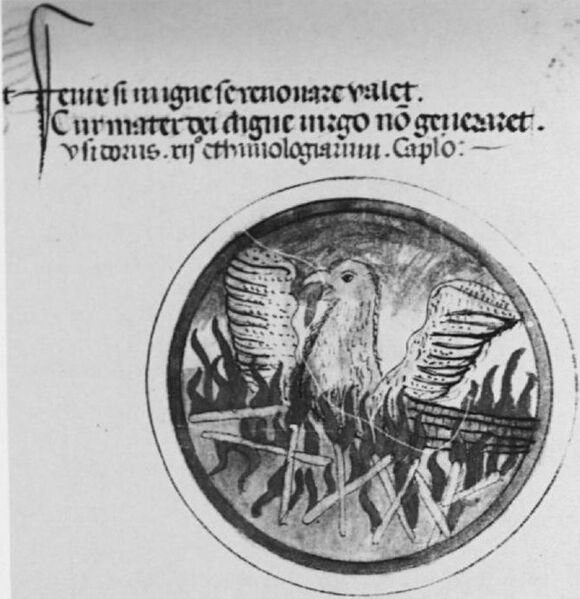 Fenix si in igne se renouare valet.
Cur mater dei digne uirgo nō generaret.
ysidorus. xijº ethimologiarum. Caplo: